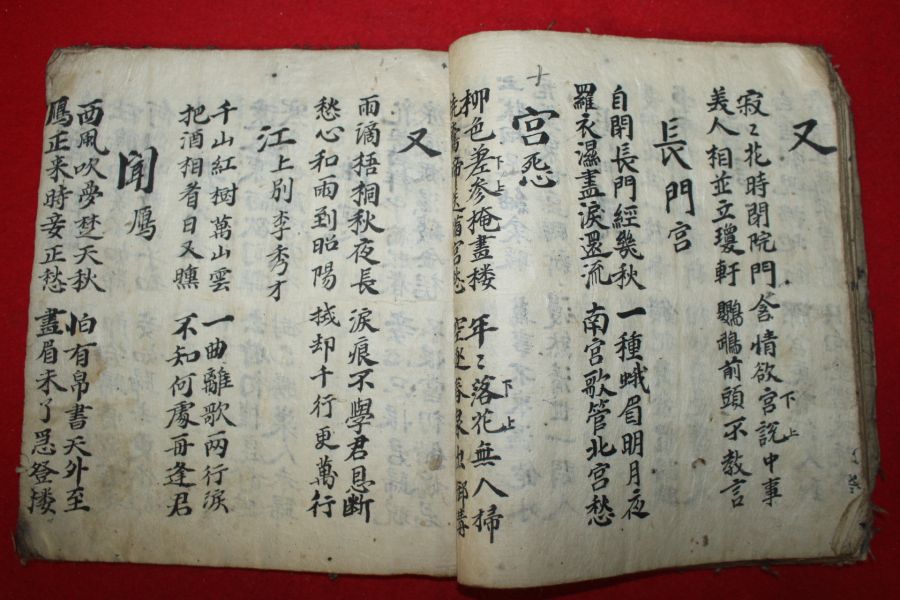 又
寂〻花時閉院門 含情欲宮說中事
下
上
美人相並立瓊軒 鸚鵡前頭不敎言
長門宮
自閉長門經幾秋 一種蛾眉明月夜
羅衣濕盡淚還流 南宮歌管北宮愁
宮怨
十
柳色差参掩畫楼 年〻落花無人掃
下
上
下
上
又
雨滴梧桐秋夜長 淚痕不學君恩斷
愁心和雨到昭陽 拭却千行更萬行
江上別李秀才
千山紅樹萬山雲 一曲離歌兩行淚
把酒相看日又曛 不知何處再逢君
聞鴈
西風吹夢楚天秋 怕有帛書天外至
鴈正来時妾正愁 畫眉未了忍登楼